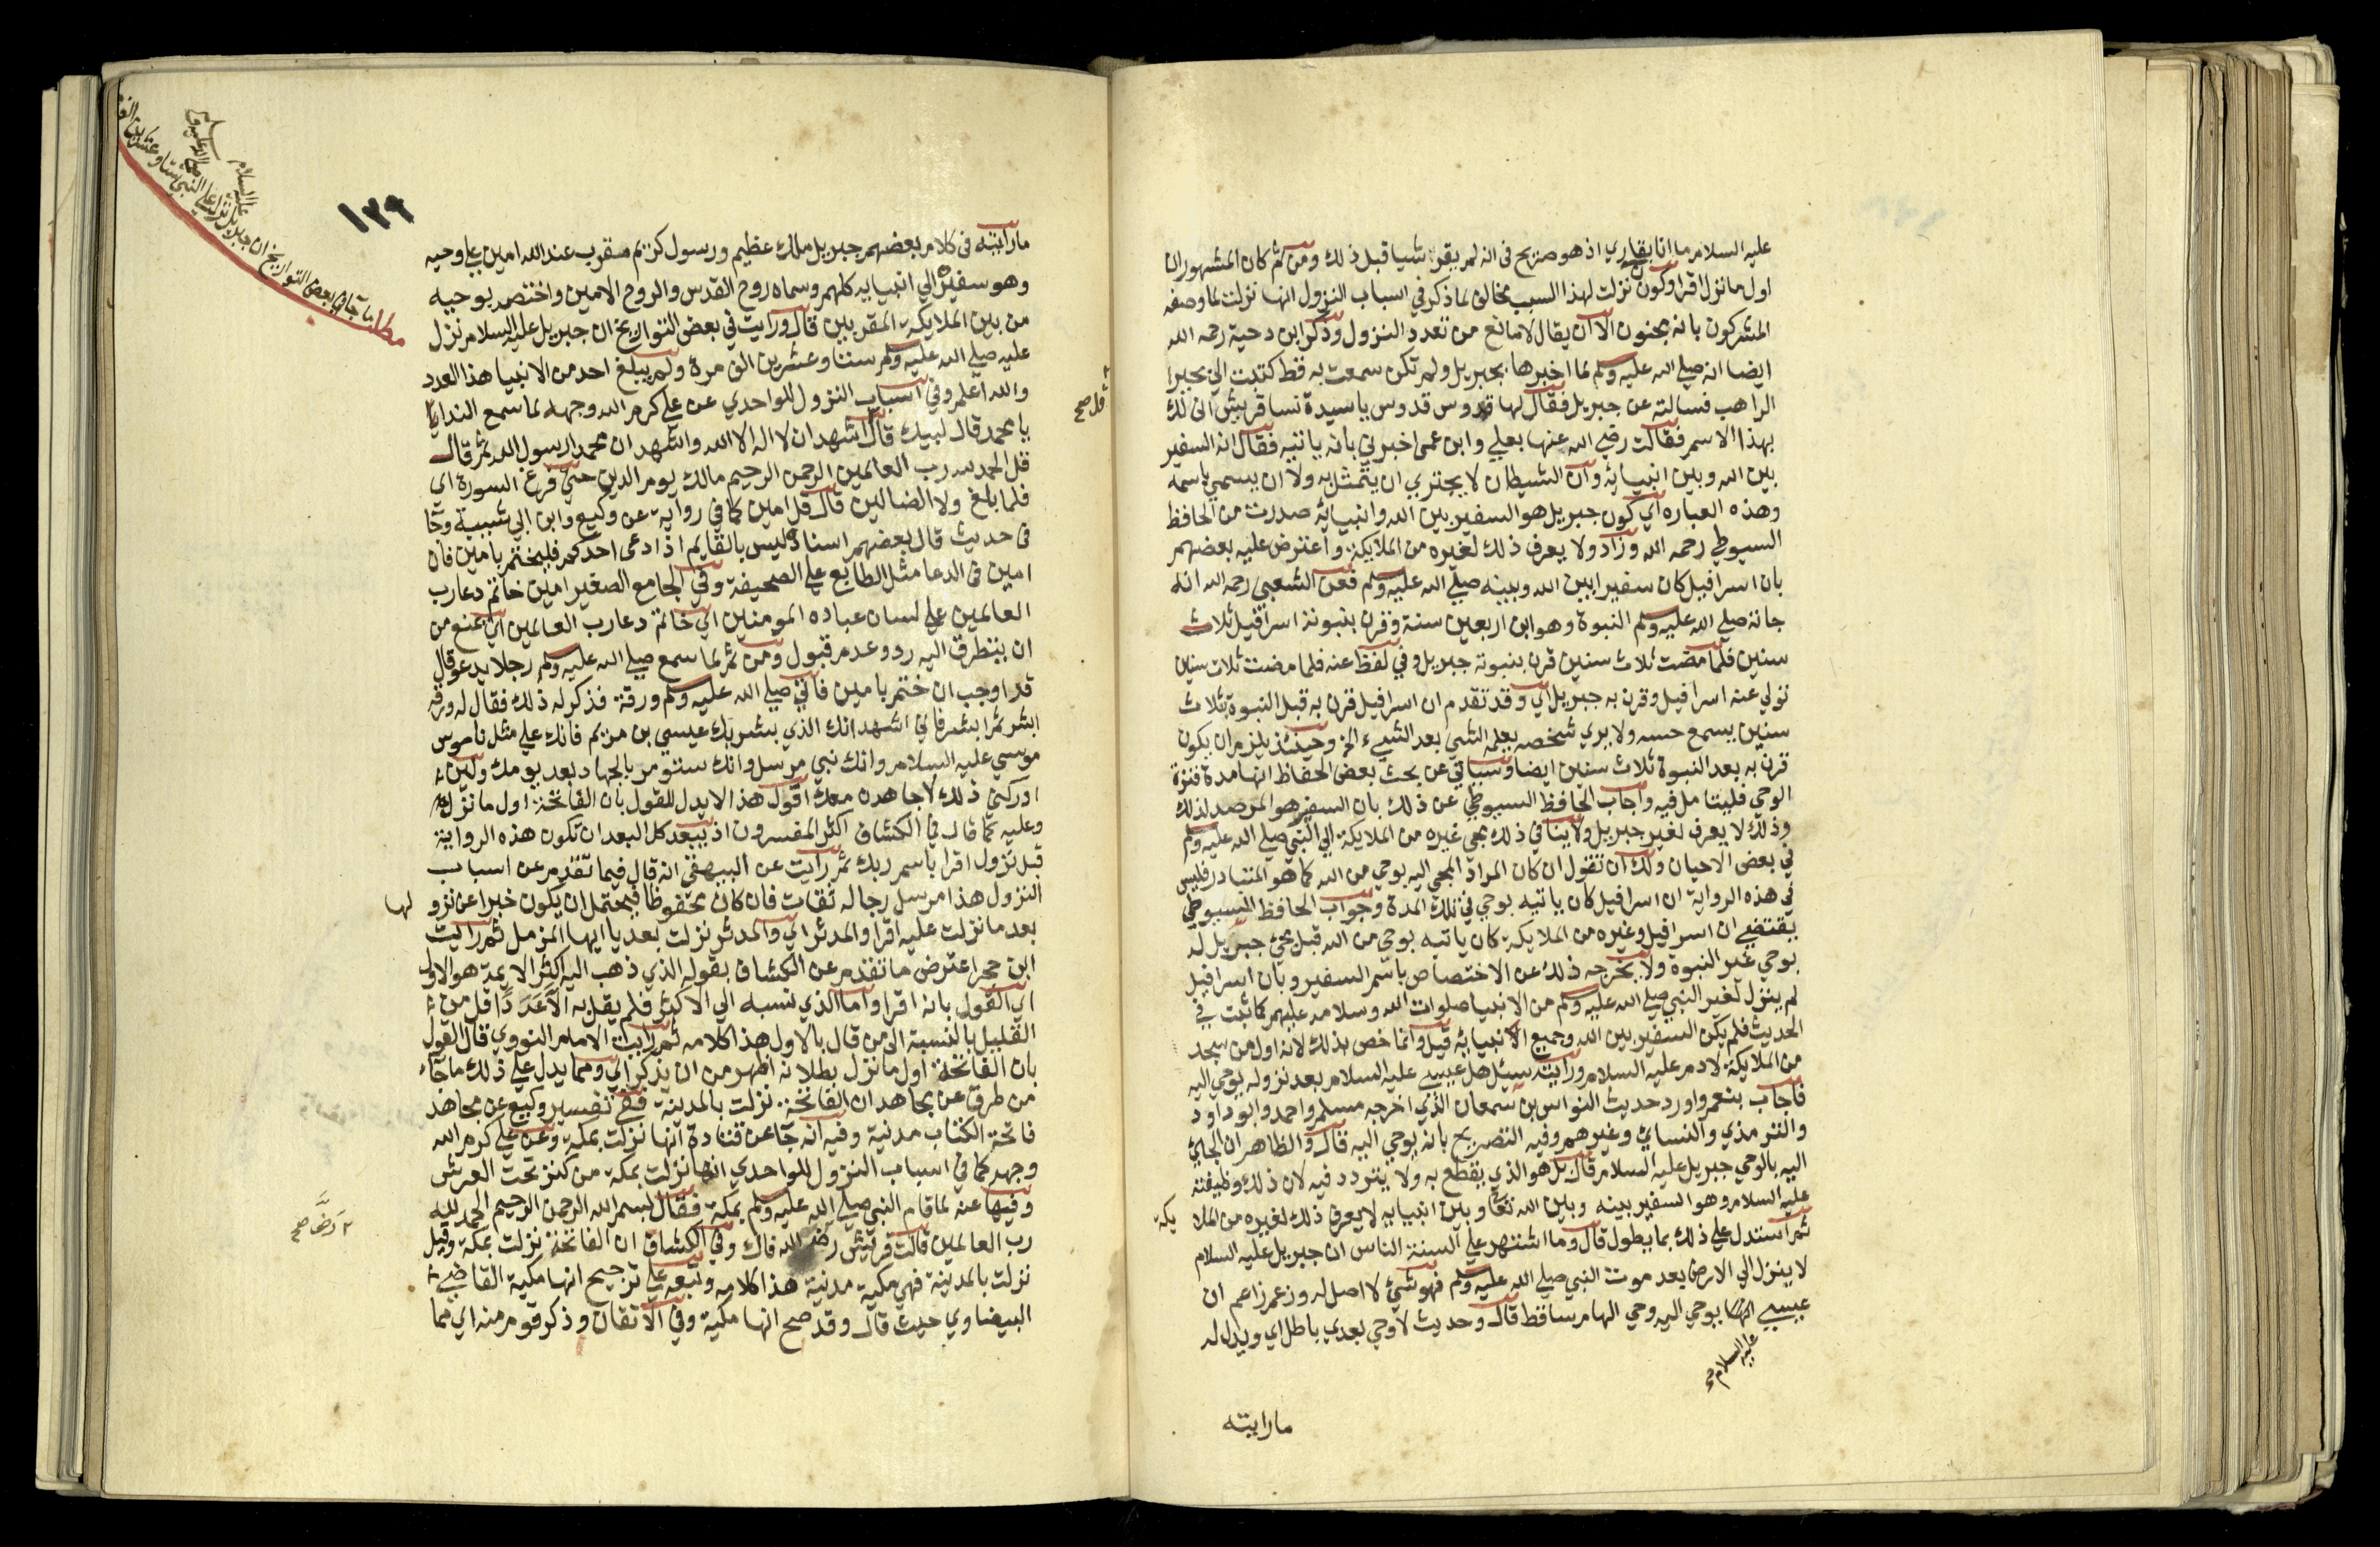 عليه السلام ما انا بقاري اذ هو صريح في انه لم يقرا شيا قبل ذلك ومن ثم كان المشهور ان
اول ما نزل اقرا وكون نزلت لهذا السبب مخالف لما ذكر في اسباب النزول انها نزلت لما وصفه
المشركون بانه مجنون الا ان يقال لا مانع من تعدد النزول وذكر ابن دحية رحمه الله
ايضا انه صلي الله عليه وسلم لما اخبرها بجبريل ولم تكن سمعت به قط كتبت الي بحيرا
الراهب فسالته عن جبريل فقال لها قدوس قدوس يا سيدة نسا قريش اني لك
بهذا الاسم فقالت رضي الله عنها بعلي وابن عمي اخبرني بانه ياتيه فقال انه السفير
بين الله وبين انبيائه وان الشيطان لا يجتري ان يتمثل به ولا ان يسمي باسمه
وهذه العباره اي كون جبريل هو السفير بين الله وانبيائه صدرت من الحافظ
السيوطي رحمه الله وزاد ولا يعرف ذلك لغيره من الملايكة واعترض عليه بعضهم
بان اسرافيل كان سفيرا بين الله وبينه صلي الله عليه وسلم فعن الشعبي رحمه الله انه
جاته صلي الله عليه وسلم النبوة وهو ابن اربعين سنة وقرن بنبوته اسرافيل ثلاث
سنين فلما مضت ثلاث سنين قرن بنبوته جبريل وفي لفظ عنه فلما مضت ثلاث سنين
تولي عنه اسرافيل وقرن به جبريل اي وقد تقدم ان اسرافيل قرن به قبل النبوة ثلاث
سنين يسمع حسه ولا يري شخصه يعلمه الشي بعد الشيء الخ وحينئذ يلزم ان يكون
قرن به بعد النبوة ثلاث سنين ايضا وسياتي عن بحث بعض الحفاظ انها مدة فترة
الوحي فليتامل فيه واجاب الحافظ السيوطي عن ذلك بان السفير هو المرصد لذلك
وذلك لا يعرف لغير جبريل ولا ينافي ذلك مجي غيره من الملايكة الي النبي صلي الله عليه وسلم
في بعض الاحيان ولك ان تقول ان كان المراد المجي اليه بوحي من الله كما هو المتبادر فليس
في هذه الرواية ان اسرافيل كان ياتيه بوحي في تلك المدة وجواب الحافظ السيوطي
يقتضي ان اسرافيل وغيره من الملايكة كان ياتيه بوحي من الله قبل مجئ جبريل له
بوحي غير النبوه ولا يخرجه ذلك عن الاختصاص باسم السفير وبان اسرافيل
لم ينزل لغير النبي صلي الله عليه وسلم من الانبيا صلوات الله وسلامه عليهم كما ثبت في
الحديث فلم يكن السفير بين الله وجميع الانبيائه قيل وانما خص بذلك لانه اول من سجد
من الملايكة لادم عليه السلام ورايت سئل هل عيسي عليه السلام بعد نزوله يوحي اليه
فاجاب بنعم واورد حديث النواس بن سمعان الذي اخرجه مسلم واحمد وابو داود
والترمذي والنساي وغيرهم وفيه التصريح بانه يوحي اليه قال والظاهر ان الجاي
اليه بالوحي جبريل عليه السلام قال بل هو الذي يقطع به ولا يتردد فيه لان ذلك وظيفته
عليه السلام وهو السفير بينه وبين الله تعا وبين انبيايه لا يعرف ذلك لغيره من الملا يكة
ثم استدل علي ذلك بما يطول قال وما اشتهر علي السنة الناس ان جبريل عليه السلام
لا ينزل الي الارض بعد موت النبي صلي الله عليه وسلم فهو شئ لا اصل له وزعم زاعم ان
عيسي انما يوحي اليه وحي الهام ساقط قال وحديث لا وحي بعدي باطل اي ويدل له
عليه السلام
مارايته
١٢٩
عليه السلام
صلي الله عليه وسلم
مطلب ما جا في بعض التواريخ ان جبريل نزل علي النبي ستا وعشرين الف
مارايته في كلام بعضهم جبريل ملك عظيم ورسول كريم مقرب عند الله امين علي وحيه
وهو سفيره الي انبيايه كلهم وسماه روح القدس والروح الامين واختصه بوحيه
من بين الملايكة المقربين قال ورايت في بعض التواريخ ان جبريل عليه السلام نزل
عليه صلي الله عليه وسلم ستا وعشرين الف مرة ولم يبلغ احد من الانبيا هذا العدد
والله اعلم وفي اسباب النزول للواحدي عن علي كرم الله وجهه لما سمع الندا
يا محمد قال لبيك قال اشهد ان لا اله الا الله واشهد ان محمدا رسول الله ثم قال
قل صح
قل الحمد لله رب العالمين الرحمن الرحيم مالك يوم الدين حتي فرغ السورة اي
فلما بلغ ولا الضالين قال قل امين كما في رواية عن وكيع وابن ابي شيبة وجا
في حديث قال بعضهم اسناده ليس بالقايم اذا دعي احدكم فليختم بامين فان
امين في الدعا مثل الطابع علي الصحيفة وفي الجامع الصغير امين خاتم دعا رب
العالمين علي لسان عباده المومنين اي خاتم دعا رب العالمين اي يمنع من
ان يتطرق اليه رد وعدم قبول ومن ثم لما سمع صلي الله عليه وسلم رجلا يدعو قال
قد اوجب ان ختم بامين فاتي صلي الله عليه وسلم ورقة فذكر له ذلك فقال له ورقه
ابشر ثم ابشر فاني اشهد انك الذي بشر بك عيسي بن مريم فانك علي مثل ناموس
موسي عليه السلام وانك نبي مرسل وانك ستومر بالجهاد بعد يومك ولين
ادركني ذلك لاجاهدن معك اقول هذا لا يدل للقول بان الفاتحة اول ما نزل
وعليه كما قال في الكشاف اكثر المفسرون اذ يبعد كل البعد ان تكون هذه الرواية
قبل نزول اقرا باسم ربك ثم رايت عن البيهقي انه قال فيما تقدم عن اسباب
النزول هذا مرسل رجاله ثقات فان كان محفوظا فيحتمل ان يكون خبرا عن نزو لها
بعد ما نزلت عليه اقرا والمدثر اي والمدثر نزلت بعد يا ايها المزمل ثم رايت
ابن حجر اعترض ما تقدم عن الكشاف بقوله الذي ذهب اليه اكثر الايمة هو الاول
اي القول بانه اقرا واما الذي نسبه الي الاكثر فلم يقل به الا عددا اقل من
القليل بالنسبة الي من قال بالاول هذا كلامه ثم رايت الامام النووي قال القول
بان الفاتحة اول ما نزل بطلانه اظهر من ان يذكر اي ومما يدل علي ذلك ما جاء
من طرق عن مجاهد ان الفاتحة نزلت بالمدينة ففي تفسير وكيع عن مجاهد
فاتحة الكتاب مدنية وفيه انه جا عن قتادة انها نزلت بمكة وعن علي كرم الله
وجهه كما في اسباب النزول للواحدي انها نزلت بمكة من كنز تحت العرش
وفيها عنه لما قام النبي صلي الله عليه وسلم بمكة فقال بسم الله الرحمن الرحيم الحمد لله
رب العالمين قالت قريش رض الله فاك وفي الكشاف ان الفاتحة نزلت بمكة وقيل
رض صح
نزلت بالمدينة فهي مكية مدنية هذا كلامه وتبعه علي ترجيح انها مكية القاضي
البيضاوي حيث قال وقد صح انها مكية وفي الاتقان وذكر قوم منه اي مما